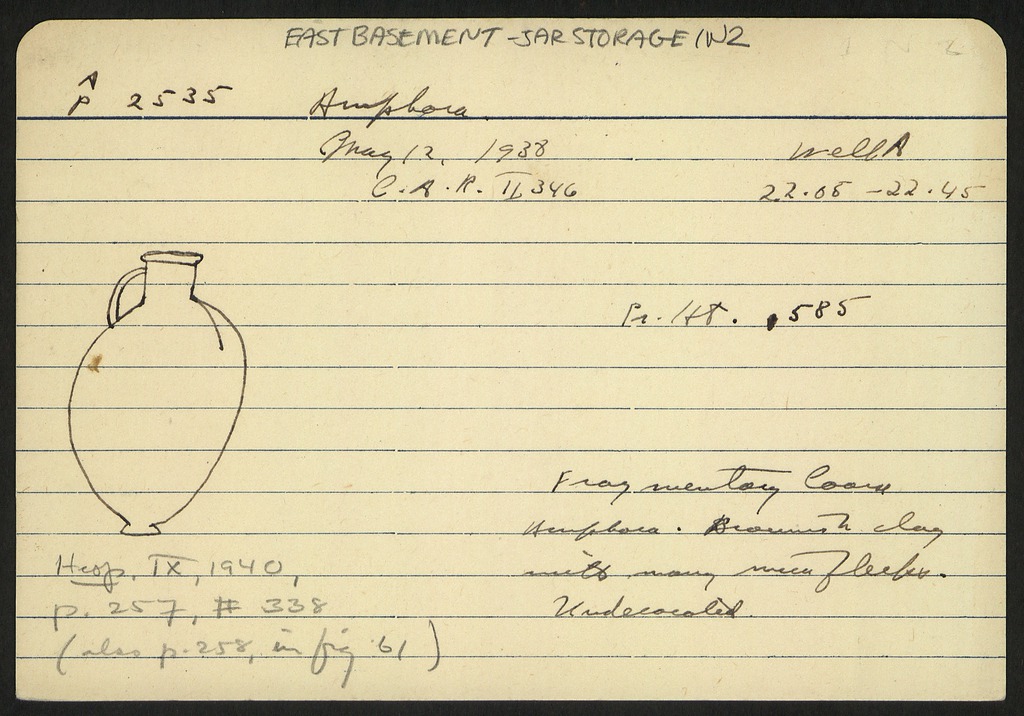 EAST BASEMENT - JAR STORAGE 1N2
A
P 2535 Amphora
May 12, 1938 Well A
C.A.R. II 346 22.08 - 22.45
Pr. Ht. .585
Fragmentary Coarse
Amphora. Brownish clay
with many mica flecks.
Undecorated.
Hesp. IX, 1940,
p. 257, # 338
(also p. 258, in fig 61)